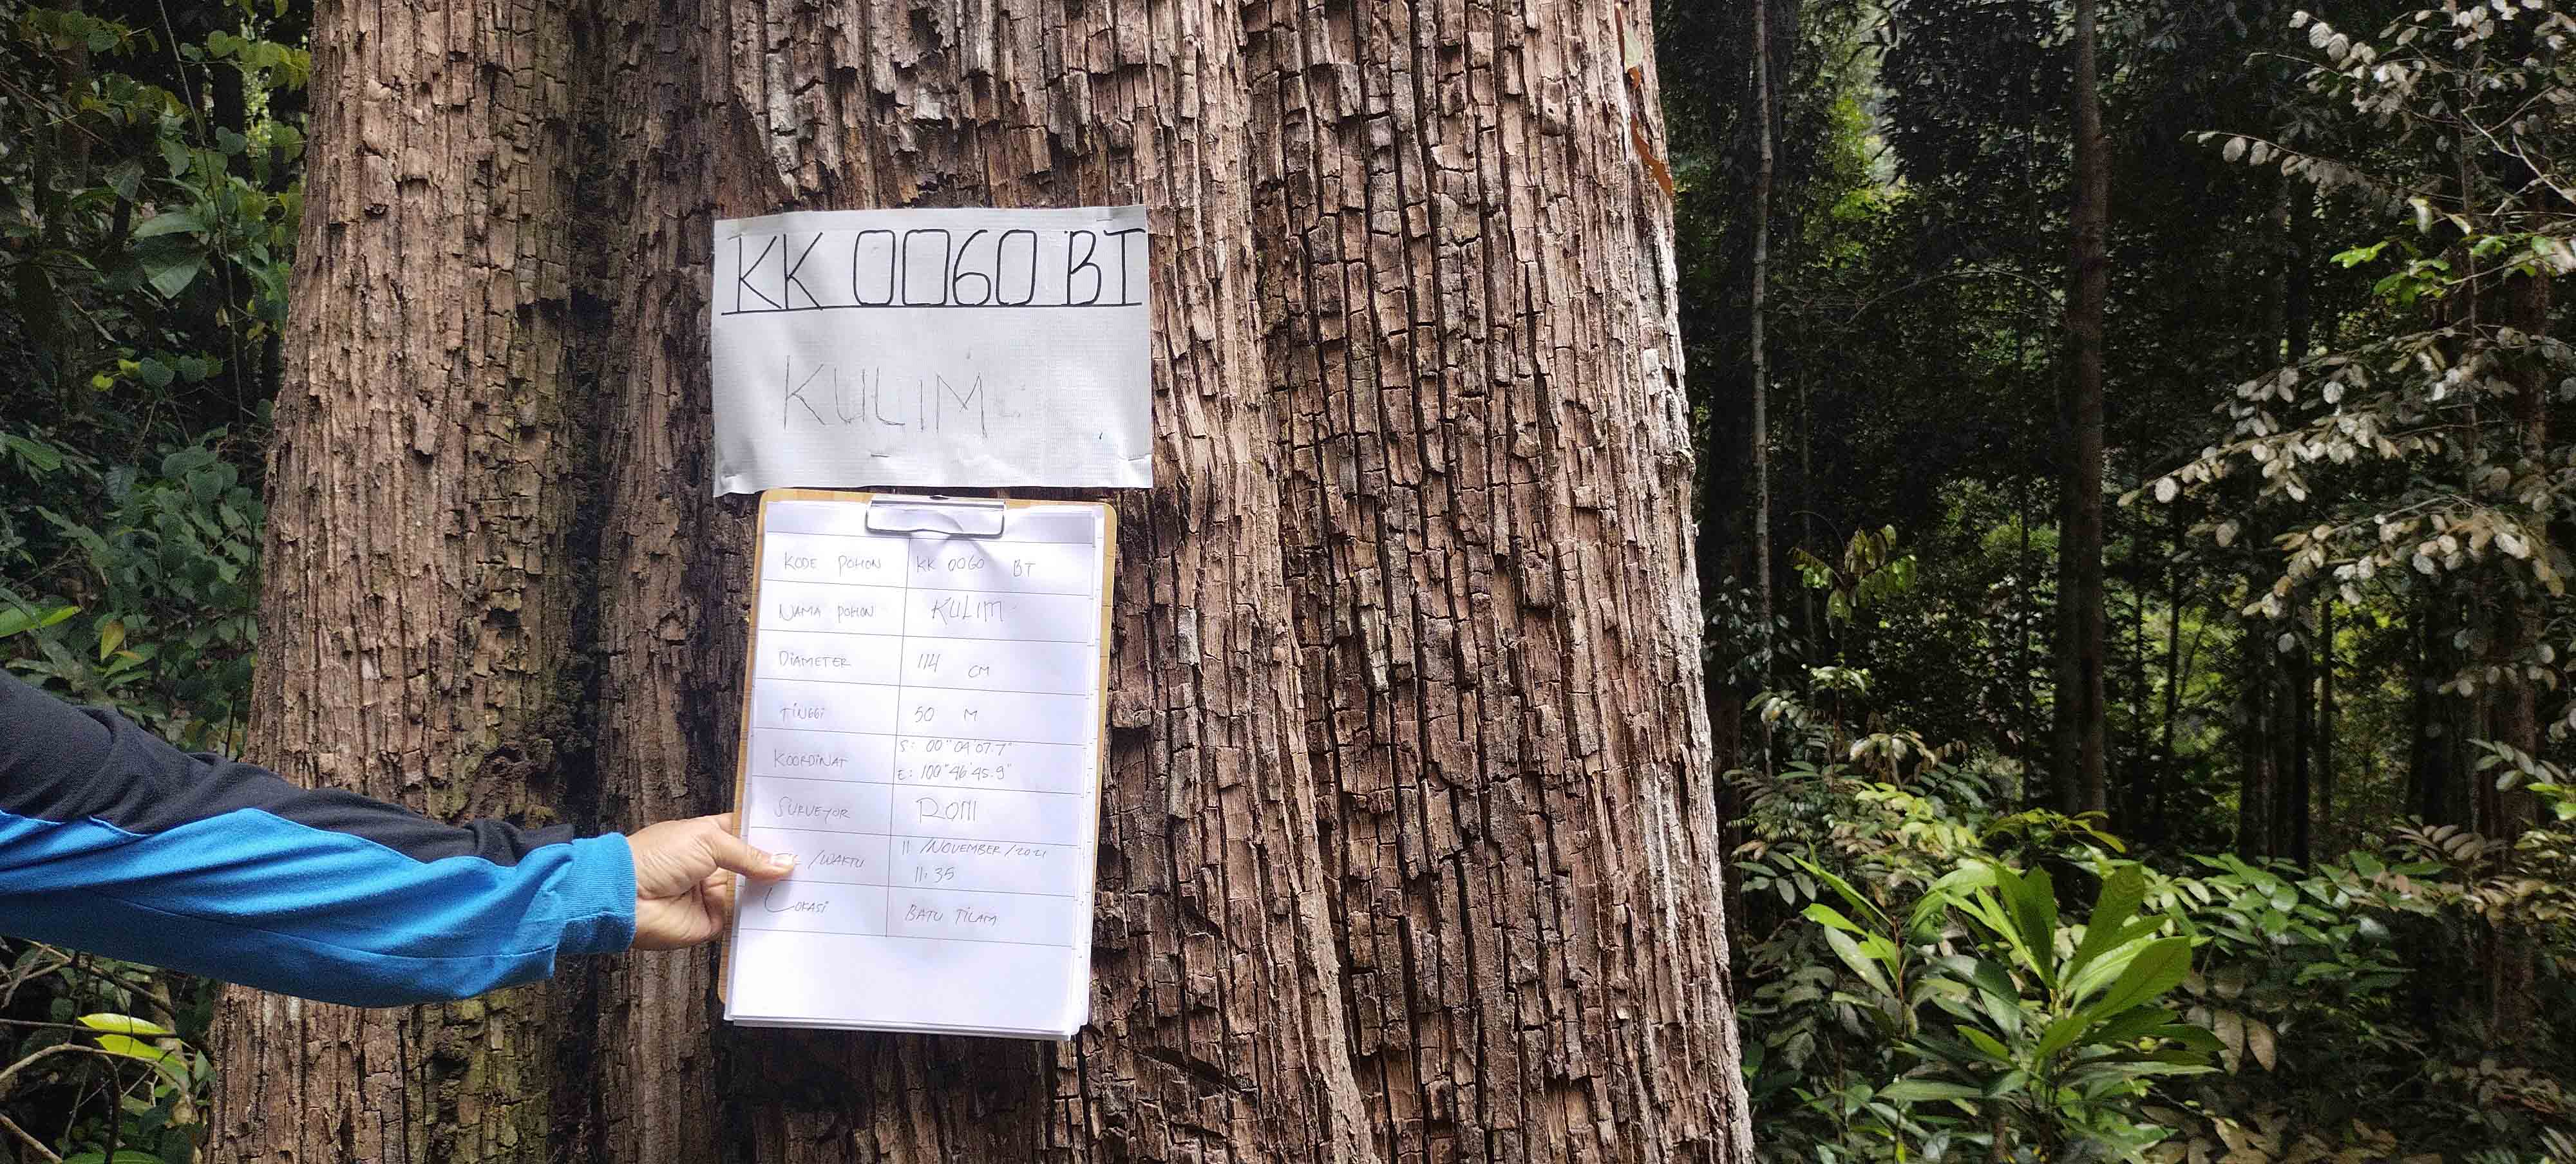 KK 0060 BT
KULIM
KODE POHON KK 0060 BT
NAMA POHON KULIM
DIAMETER 114 CM
TINGGI 50 M
KOORDINAT S: 00" 04' 07.7"
E: 100" 46' 45.9"
SURVEYOR ROMI
/WAKTU 11 /NOVEMBER/2021
11.35
LOKASI BATU TILAM